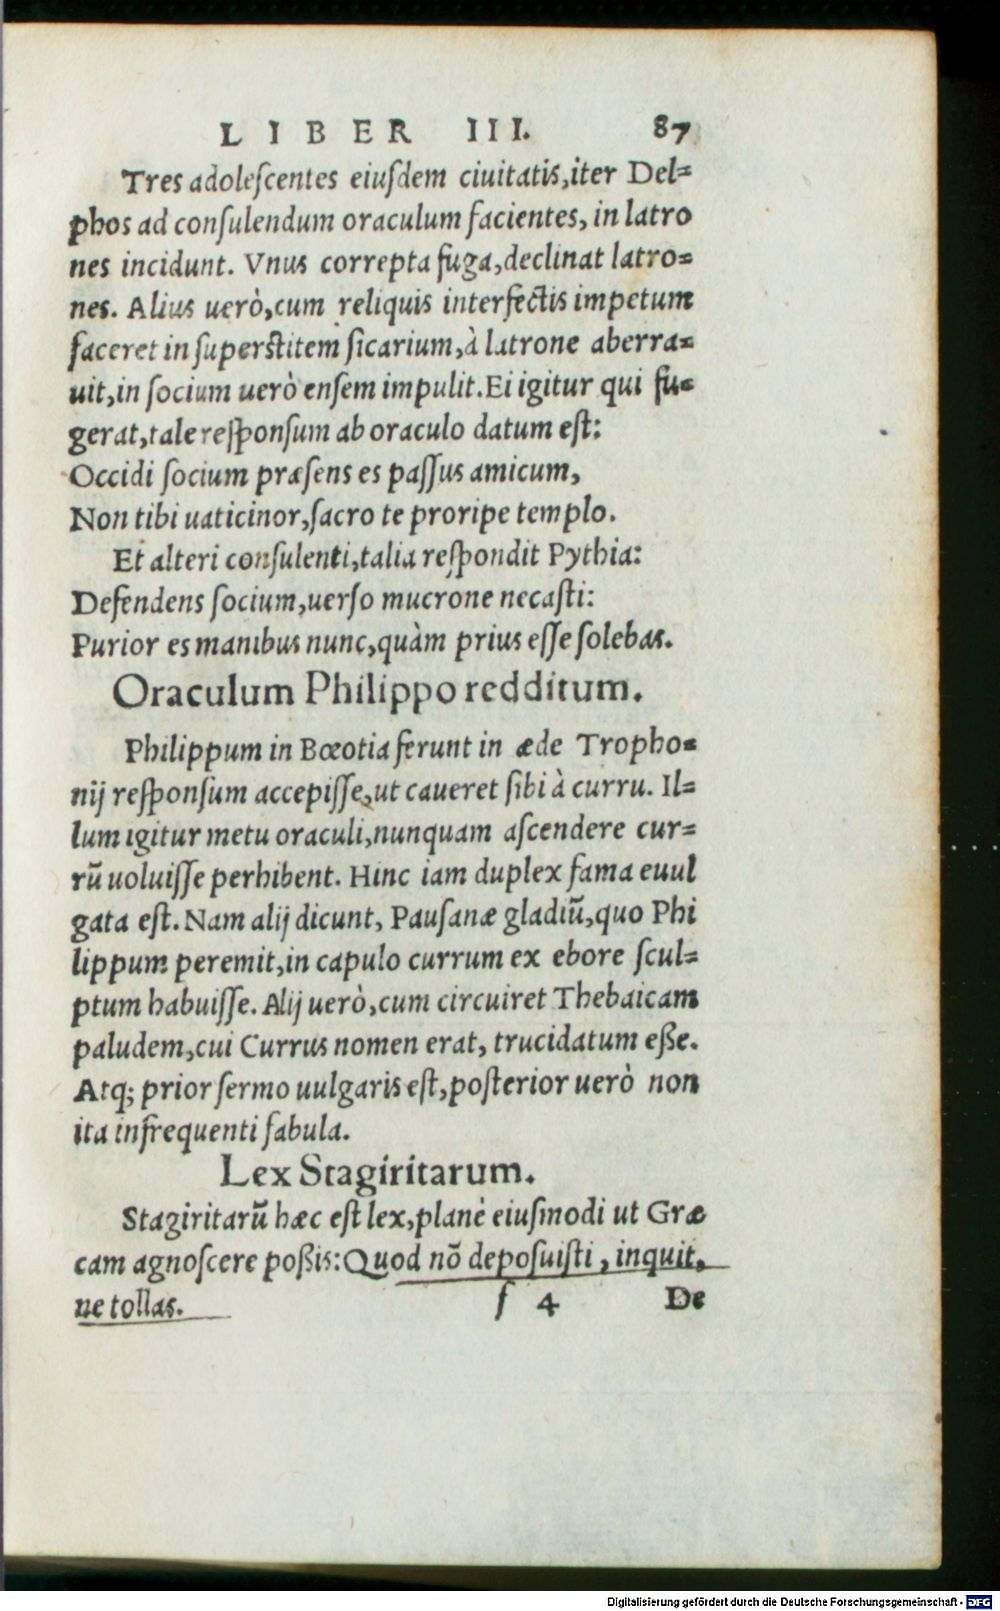 LIBER III. 87
Tres adolescentes eiusdem ciuitatis,iter Del=
phos ad consulendum oraculum facientes, in latro
nes incidunt. Vnus correpta fuga,declinat latro=
nes. Alius uerò,cum reliquis interfectis impetum
faceret in superstitem sicarium,à latrone aberra=
uit,in socium uerò ensem impulit.Ei igitur qui fu=
gerat,tale responsum ab oraculo datum est:
Occidi socium præsens es passus amicum,
Non tibi uaticinor,sacro te proripe templo.
Et alteri consulenti,talia respondit Pythia:
Defendens socium,uerso mucrone necasti:
Purior es manibus nunc,quàm prius esse solebas.
Oraculum Philippo redditum.
Philippum in Bœotia ferunt in æde Tropho=
nij responsum accepisse,ut caueret sibi à curru. Il=
lum igitur metu oraculi,nunquam ascendere cur=
rũ uoluisse perhibent. Hinc iam duplex fama euul
gata est. Nam alij dicunt, Pausanæ gladiũ,quo Phi
lippum peremit,in capulo currum ex ebore scul=
ptum habuisse. Alij uerò,cum circuiret Thebaicam
paludem,cui Currus nomen erat, trucidatum eße.
Atq; prior sermo uulgaris est,posterior uerò non
ita infrequenti fabula.
Lex Stagiritarum.
Stagiritarũ hæc est lex,planè eiusmodi ut Græ
cam agnoscere poßis:Quod nõ deposuisti, inquit,
ne tollas.
f 4 De
Digitalisierung gefördert durch die Deutsche Forschungsgemeinschaft - DFG